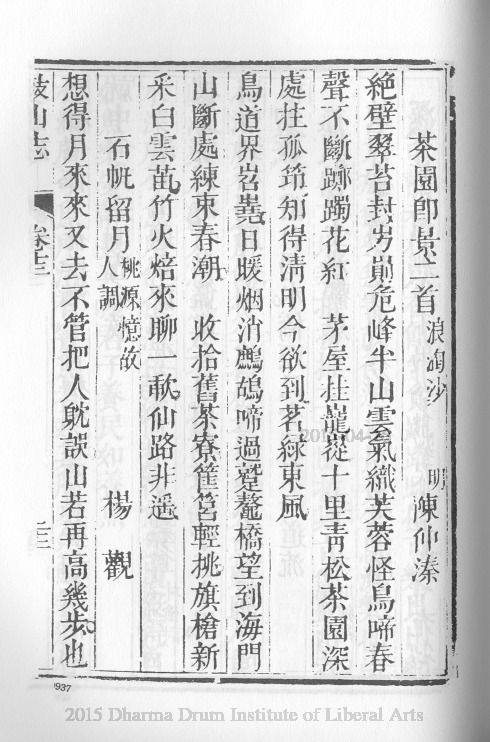 茶園即景二首 浪淘沙 明 陳仲溱
絶壁翠苔封岝崱危峰半山雲氣織芙蓉怪鳥啼春
聲不斷躑躅花紅 茅屋挂蘢蓯十里靑松茶園深
處拄孤筇知得淸明今欲到茗綠東風
鳥道界岧嶤日暖烟消鷓鴣啼過蹵鼇橋望到海門
山斷處練束春潮 收拾舊茶寮筐筥輕挑旗槍新
采白雲苗竹火焙來聊一歃仙路非遥
石帆留月 桃源憶故人調 楊觀
想得月來來又去不管把人躭誤山若再高幾步也
鼓山志 卷十三 三
1937
2015 Dharma Drum Institute of Liberal Arts